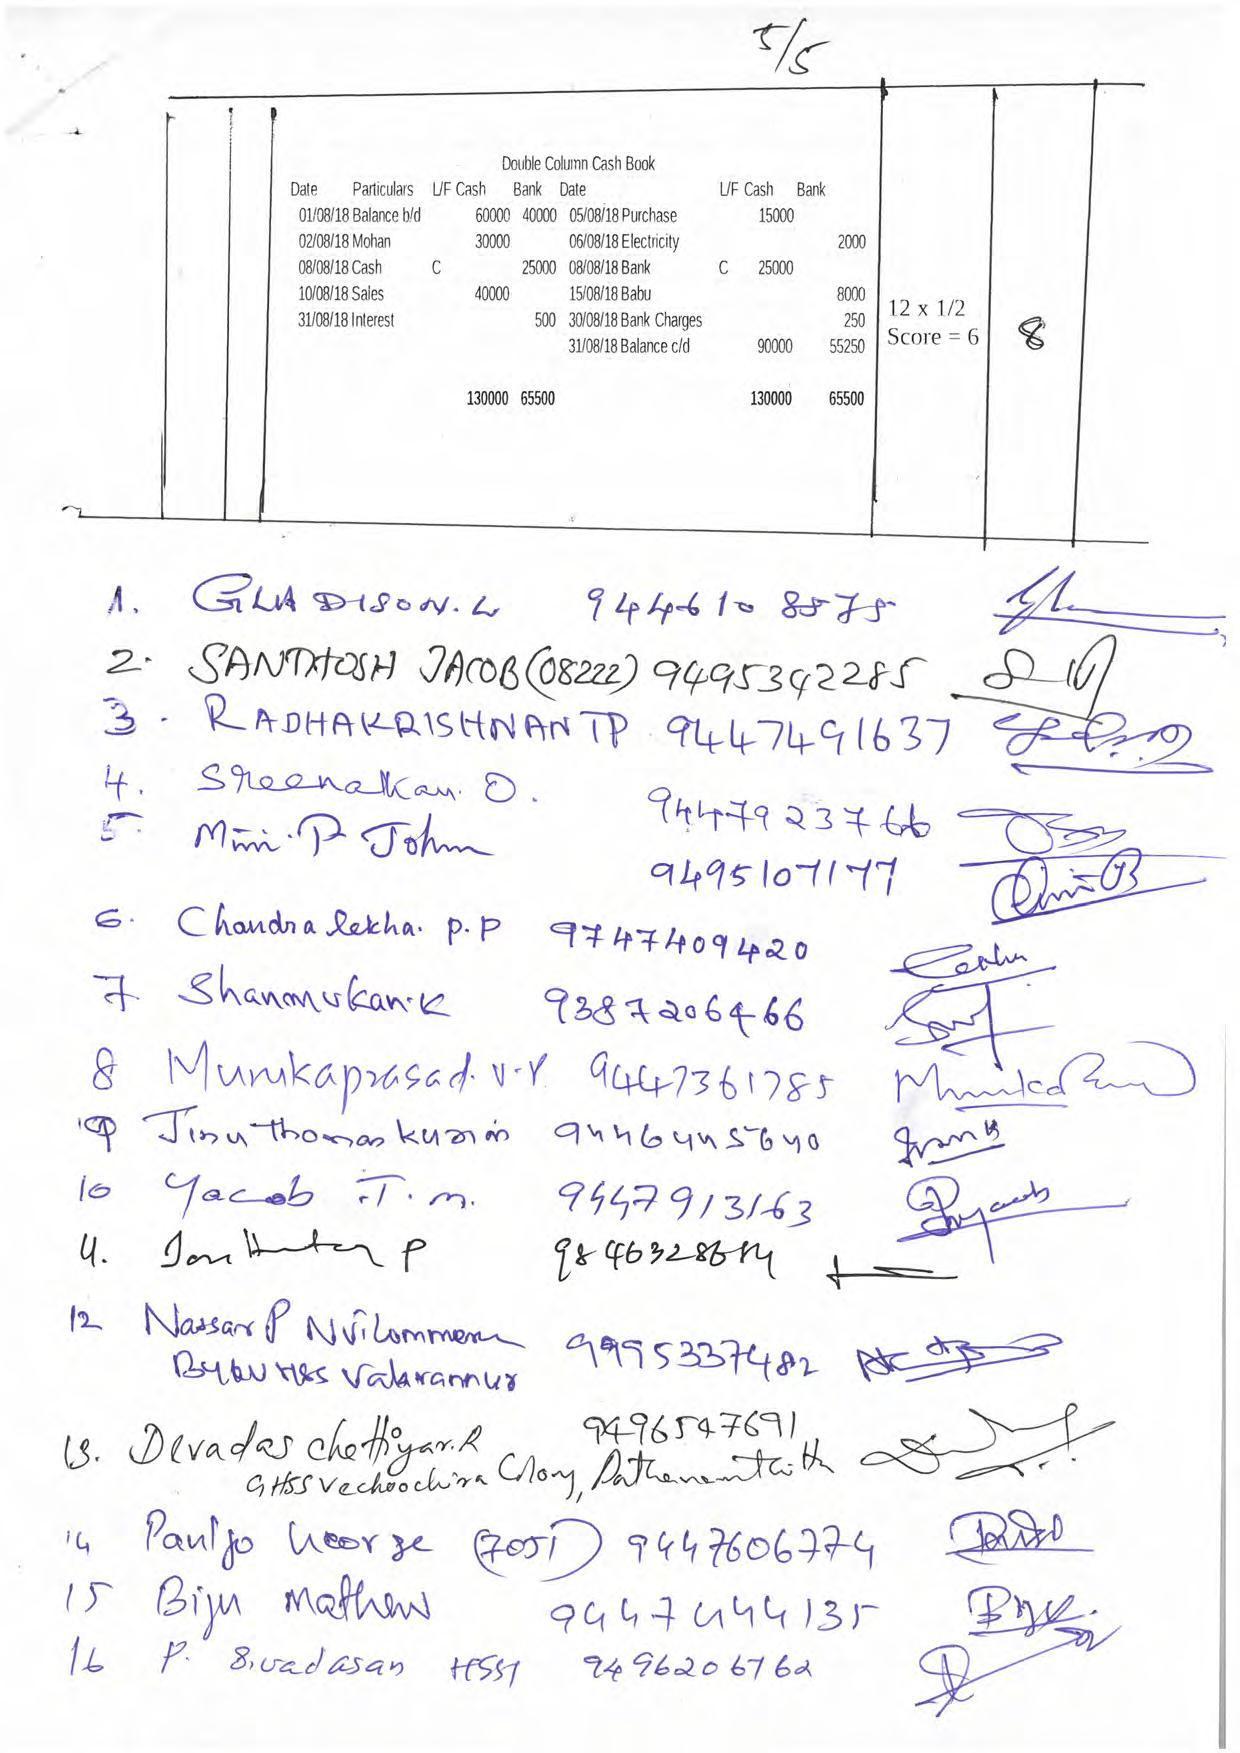 5/5
Double Column Cash Book
Date Particulars L/F Cash Bank Date L/F Cash Bank
01/08/18 Balance b/d 60000 40000 05/08/18 Purchase 15000
02/08/18 Mohan 30000 06/08/18 Electricity 2000
08/08/18 Cash C 25000 08/08/18 Bank C 25000
10/08/18 Sales 40000 15/08/18 Babu 8000
31/08/18 Interest 500 30/08/18 Bank Charges 250
31/08/18 Balance c/d 90000 55250
130000 65500 130000 65500
12 x 1/2
Score = 6
8
1. GLADISON. L 9446108575
2. SANTHOSH JACOB (08222) 9495342285
3. RADHAKRISHNAN TP 9447491637
4. Sreenakan. O. 9447923766
5 Mini. P John 9495107177
6. Chandralekha. P. P 9747409420
7 Shanmukan. K 9387206466
8 Murukaprasad. V. P. 9447361785
9 Jinu Thomas Kurian 9446445640
10 Yacob T. M. 9447913163
11. P
12 Nassar P 9995337482
HSS Valavannur
13. Devadas Chettiyar. R 9496547691
GHSS Vechoochira Colony, Pathanamthitta
14 Pauljo George (7051) 9447606774
15 Biju Mathew 9447444135
16 P. Sivadasan HSST 9496206762